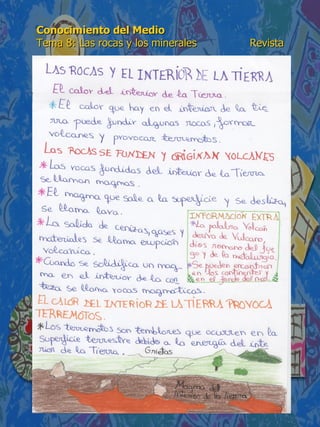 Conocimiento del Medio
Tema 8: Las rocas y los minerales Revista
LAS ROCAS Y EL INTERIOR DE LA TIERRA
EL calor del interior de la Tierra.
*El calor que hay en el interior de la tie
rra puede fundir algunas rocas, formar
volcanes y provocar terremotos.
Las ROCAS SE FUNDEN Y ORIGINAN VOLCANES
*Las rocas fundidas del interior de la Tierra
se llaman magmas.
*El magma que sale a la superficie y se desliza,
se llama lava.
*La salida de cenizas, gases y
materiales se llama erupción
volcánica.
*Cuando se solidifica un mag_
ma en el interior de la cor_
teza se llama rocas magmáticas.
INFORMACIÓN EXTRA
*La palabra Volcán
deriva de Vulcano,
dios romano del fue
go y de la metalurgia.
*Se pueden encontrar
en los continentes y
en el fondo del mar.
EL CALOR DEL INTERIOR DE LA TIERRA PROVOCA
TERREMOTOS.
*Los terremotos son temblores que ocurren en la
superficie terrestre debido a la energía del inte
rior de la Tierra.
Grietas
Magma del
interior de la tierra